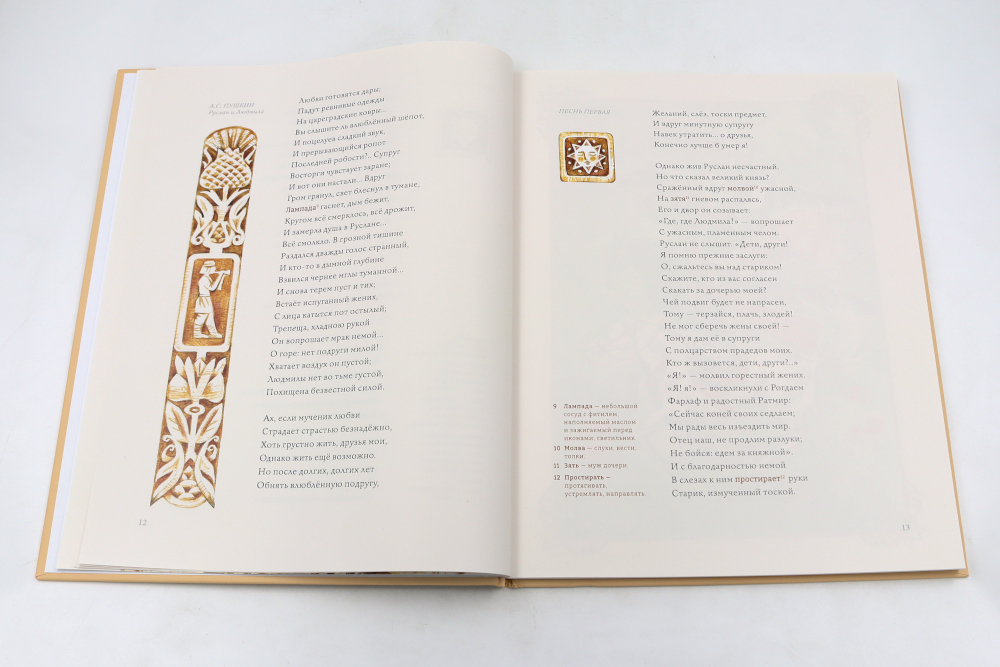 А.С. ПУШКИН
Руслан и Людмила
Любви готовятся дары;
Падут ревнивые одежды
На цареградские ковры...
Вы слышите ль влюблённый шёпот,
И поцелуев сладкий звук,
И прерывающийся ропот
Последней робости?.. Супруг
Восторги чувствует заране;
И вот они настали... Вдруг
Гром грянул, свет блеснул в тумане,
Лампада⁹ гаснет, дым бежит,
Кругом всё смерклось, всё дрожит,
И замерла душа в Руслане...
Всё смолкло. В грозной тишине
Раздался дважды голос странный,
И кто-то в дымной глубине
Взвился чернее мглы туманной...
И снова терем пуст и тих;
Встаёт испуганный жених,
С лица катится пот остылый;
Трепеща, хладною рукой
Он вопрошает мрак немой...
О горе: нет подруги милой!
Хватает воздух он пустой;
Людмилы нет во тьме густой,
Похищена безвестной силой.
Ах, если мученик любви
Страдает страстью безнадёжно,
Хоть грустно жить, друзья мои,
Однако жить ещё возможно.
Но после долгих, долгих лет
Обнять влюблённую подругу,
12
ПЕСНЬ ПЕРВАЯ
Желаний, слёз, тоски предмет,
И вдруг минутную супругу
Навек утратить... о друзья,
Конечно лучше б умер я!
Однако жив Руслан несчастный.
Но что сказал великий князь?
Сражённый вдруг молвой¹⁰ ужасной,
На зятя¹¹ гневом распалясь,
Его и двор он созывает:
«Где, где Людмила?» — вопрошает
С ужасным, пламенным челом.
Руслан не слышит. «Дети, други!
Я помню прежние заслуги:
О, сжальтесь вы над стариком!
Скажите, кто из вас согласен
Скакать за дочерью моей?
Чей подвиг будет не напрасен,
Тому — терзайся, плачь, злодей!
Не мог сберечь жены своей! —
Тому я дам её в супруги
С полцарством прадедов моих.
Кто ж вызовется, дети, други?..»
«Я!» — молвил горестный жених.
«Я! я!» — воскликнули с Рогдаем
Фарлаф и радостный Ратмир:
«Сейчас коней своих седлаем;
Мы рады весь изъездить мир.
Отец наш, не продлим разлуки;
Не бойся: едем за княжной».
И с благодарностью немой
В слезах к ним простирает¹² руки
Старик, измученный тоской.
9 Лампада — небольшой
сосуд с фитилем,
наполняемый маслом
и зажигаемый перед
иконами; светильник.
10 Молва — слухи, вести,
толки.
11 Зять — муж дочери.
12 Простирать —
протягивать,
устремлять, направлять.
13